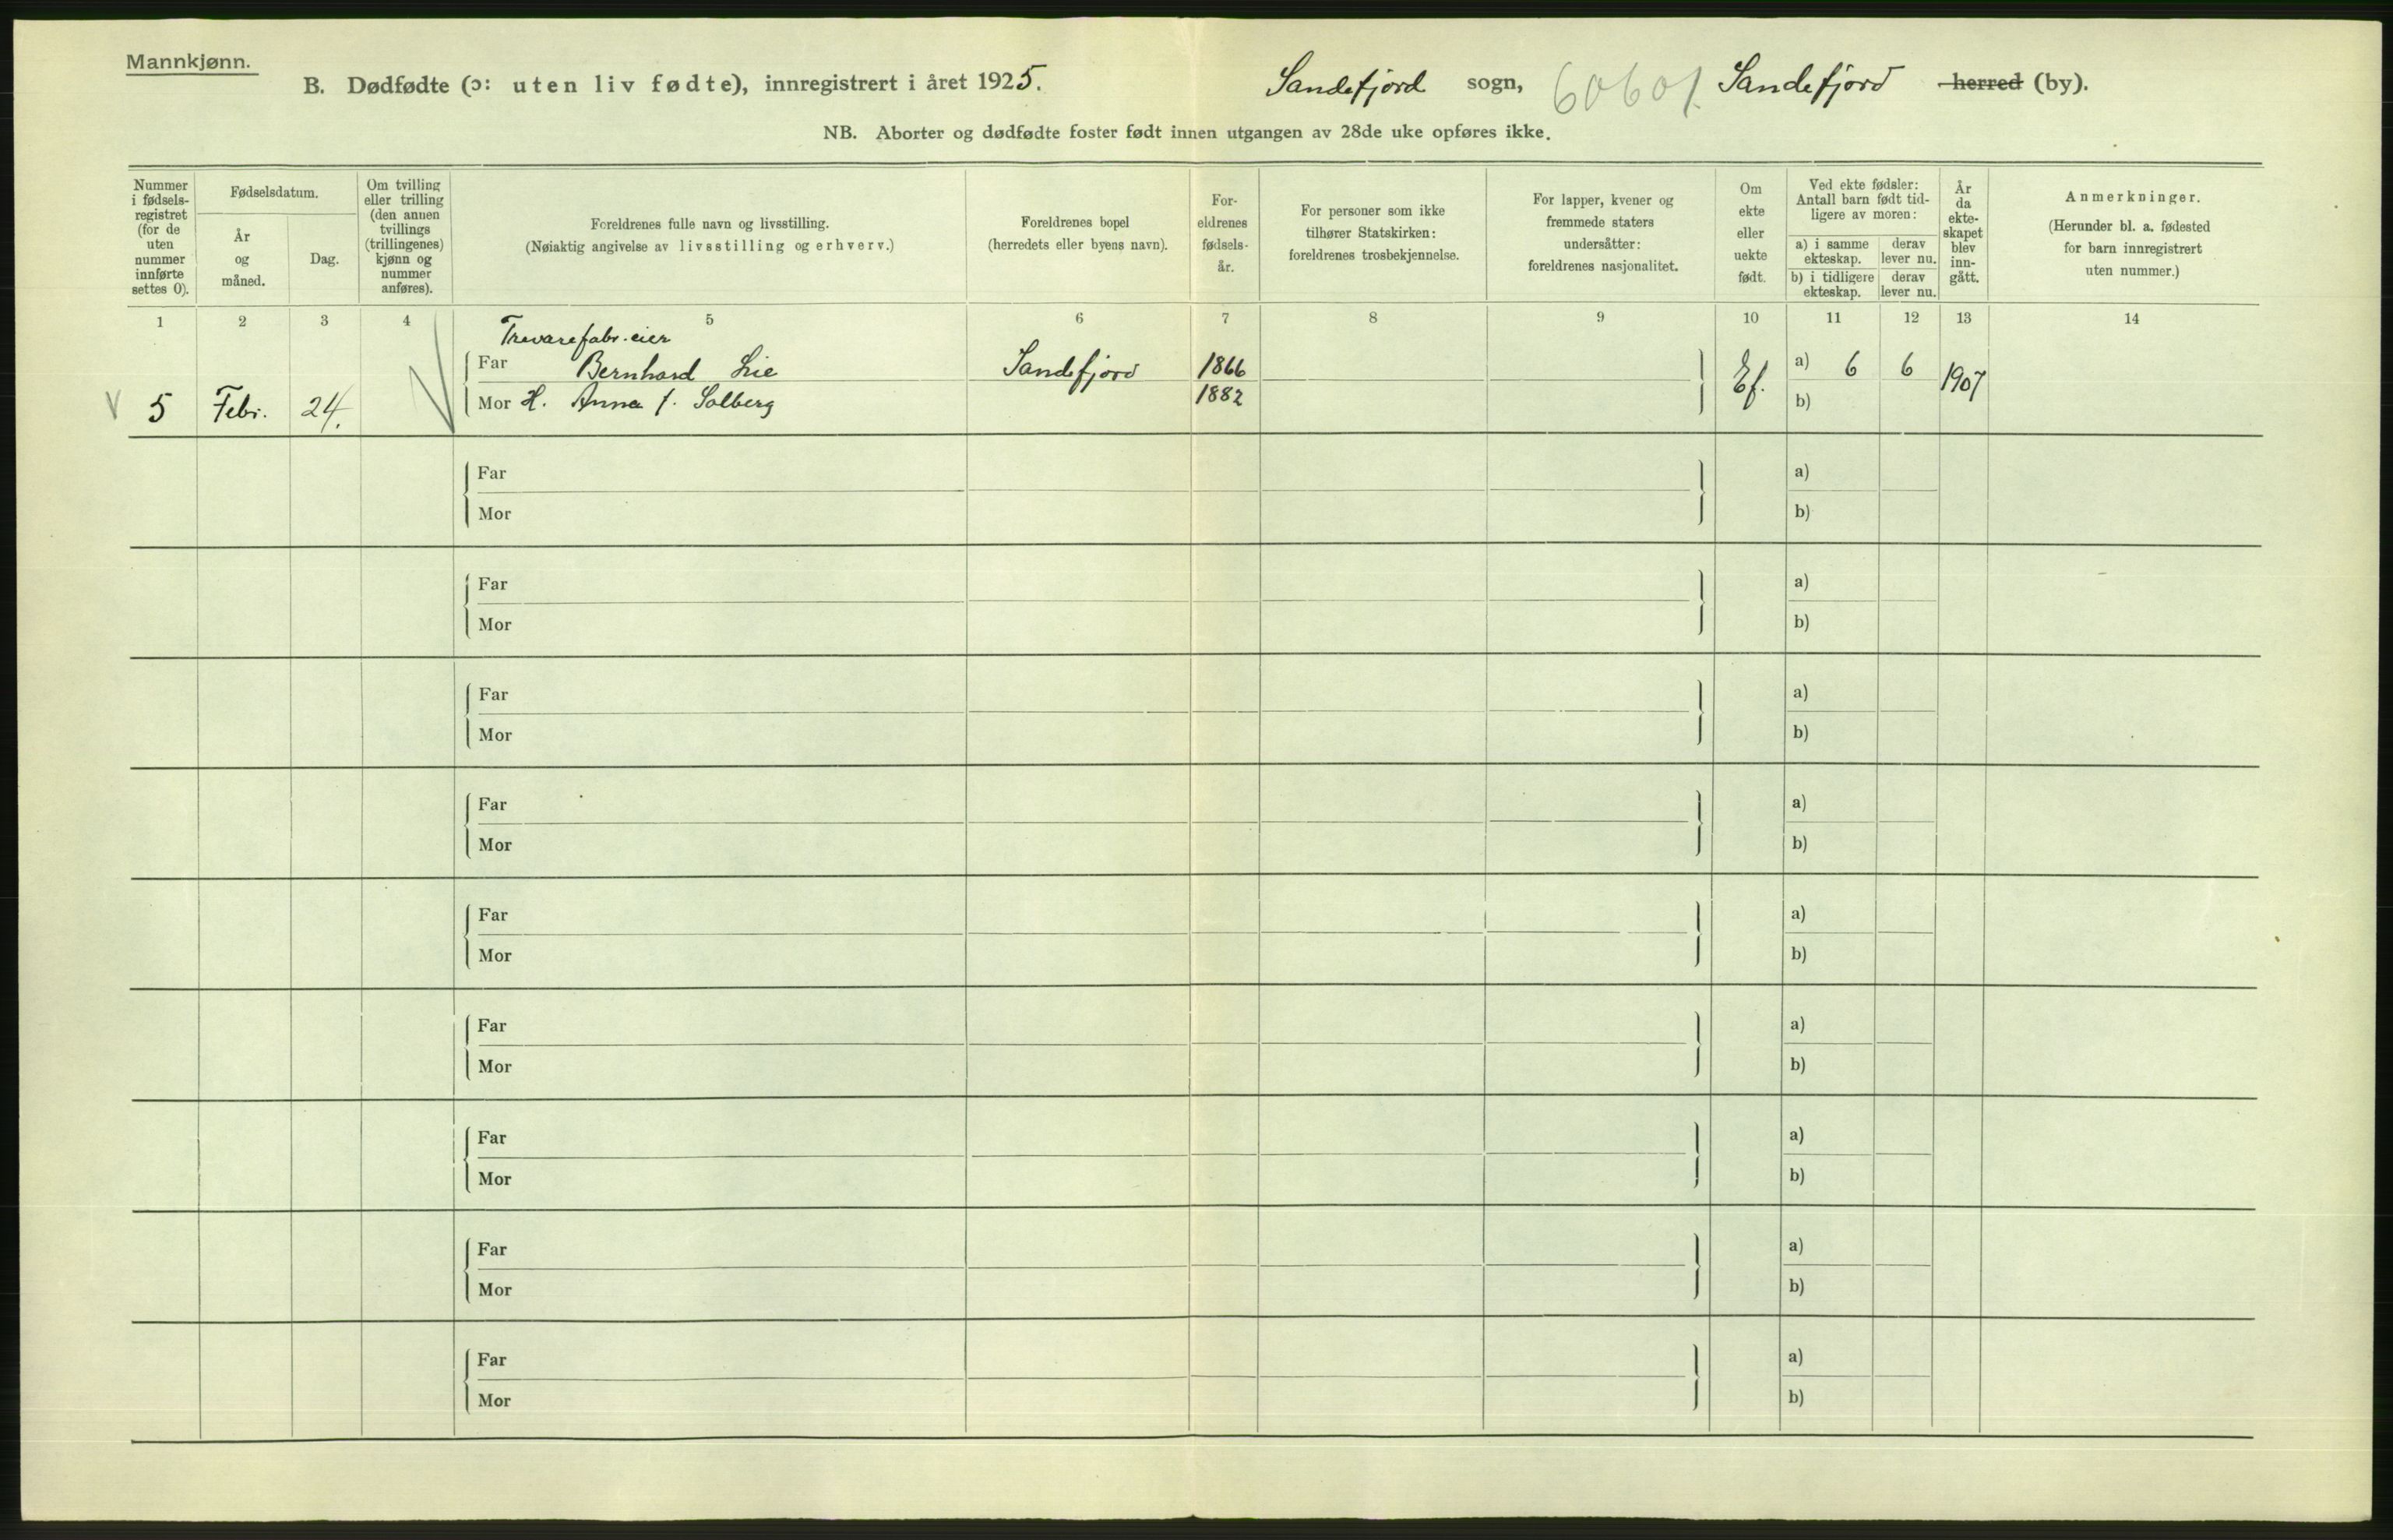 Mannkjønn.
B. Dødfødte (ɔ: uten liv fødte), innregistrert i året 1925. Sandefjord sogn, 60601. Sandefjord herred (by).
NB. Aborter og dødfødte foster født innen utgangen av 28de uke opføres ikke.
Nummer i fødsels-registret (for de uten nummer innførte settes 0).
Fødselsdatum.
År og måned.
Dag.
Om tvilling eller trilling (den annen tvillings (trillingenes) kjønn og nummer anføres).
Foreldrenes fulle navn og livsstilling.
(Nøiaktig angivelse av livsstilling og erhverv.)
Foreldrenes bopel
(herredets eller byens navn).
For-eldrenes fødsels-år.
For personer som ikke tilhører Statskirken: foreldrenes trosbekjennelse.
For lapper, kvener og fremmede staters undersåtter: foreldrenes nasjonalitet.
Om ekte eller uekte født.
Ved ekte fødsler: Antall barn født tid-ligere av moren:
a) i samme ekteskap.
derav lever nu.
b) i tidligere ekteskap.
derav lever nu.
År da ekte-skapet blev inn-gått.
Anmerkninger.
(Herunder bl. a. fødested for barn innregistrert uten nummer.)
1 2 3 4 5 6 7 8 9 10 11 12 13 14
Trevarefabr. eier
Far Bernhard Lie Sandefjord 1866 a) 6 6
5 Febr. 24. Mor H. Anna f. Solberg 1882 Ef. b) 1907
Far a)
Mor b)
Far a)
Mor b)
Far a)
Mor b)
Far a)
Mor b)
Far a)
Mor b)
Far a)
Mor b)
Far a)
Mor b)
Far a)
Mor b)
Far a)
Mor b)